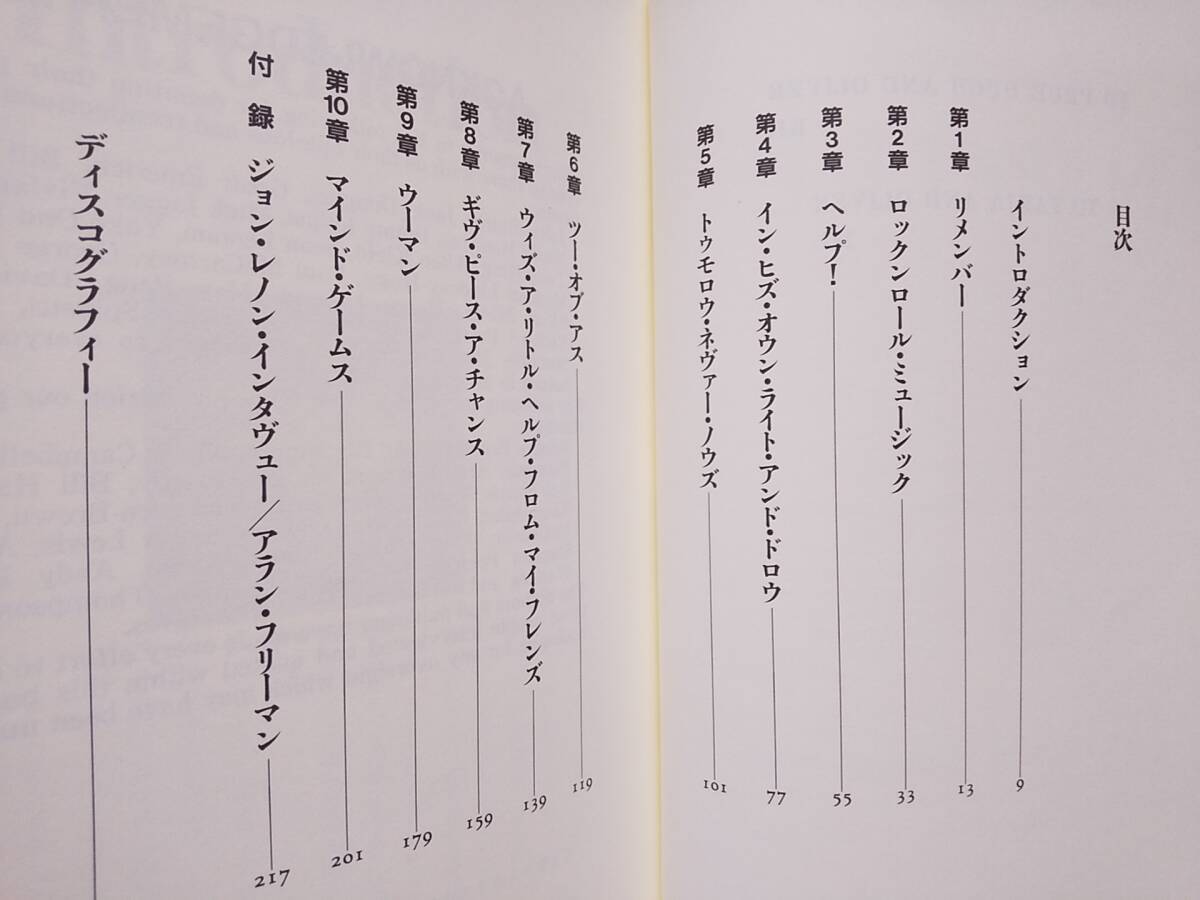 目次
イントロダクション 9
第1章 リメンバー 13
第2章 ロックンロール・ミュージック 33
第3章 ヘルプ! 55
第4章 イン・ヒズ・オウン・ライト・アンド・ドロウ 77
第5章 トゥモロウ・ネヴァー・ノウズ 101
第6章 ツー・オブ・アス 119
第7章 ウィズ・ア・リトル・ヘルプ・フロム・マイ・フレンズ 139
第8章 ギヴ・ピース・ア・チャンス 159
第9章 ウーマン 179
第10章 マインド・ゲームス 201
付録 ジョン・レノン・インタヴュー/アラン・フリーマン 217
ディスコグラフィー